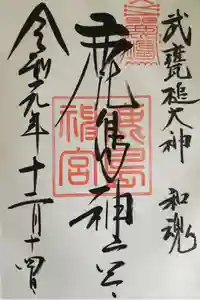 武甕槌大神 和魂
鹿島神宮
鹿島
神宮
令和元年十二月十四日